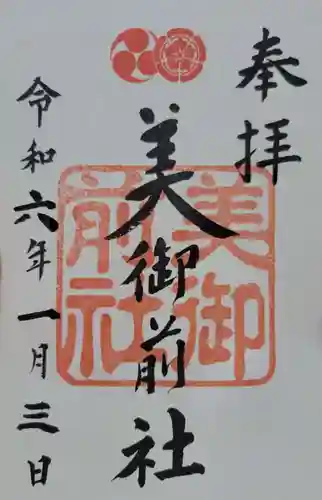 奉拝
美御前社
美御
前社
令和六年一月三日